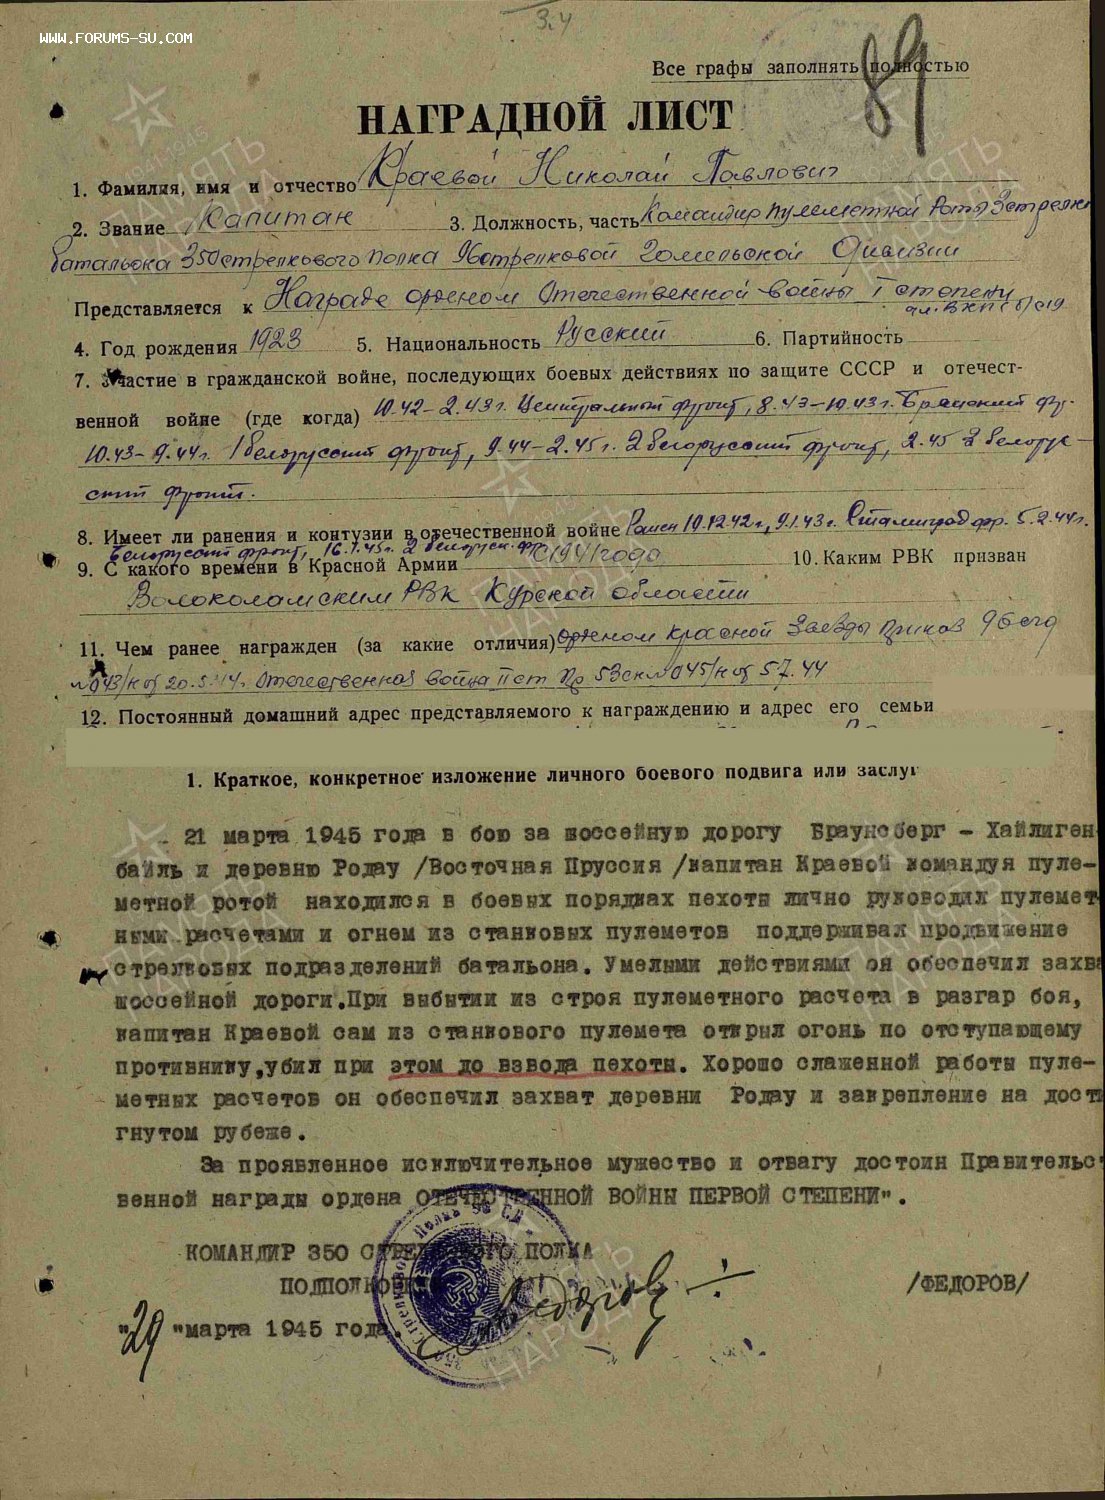 3.4
WWW.FORUMS-SU.COM
89
Все графы заполнять полностью
НАГРАДНОЙ ЛИСТ
1. Фамилия, имя и отчество Краевой Николай Павлович
2. Звание Капитан 3. Должность, часть Командир пулеметной роты 3 стрелк
батальона 350 стрелкового полка 96 стрелковой Гомельской Дивизии
Представляется к Награде орденом Отечественной войны I степени
чл. ВКП(б) с
4. Год рождения 1923 5. Национальность Русский 6. Партийность
7. Участие в гражданской войне, последующих боевых действиях по защите СССР и отечест-
венной войне (где когда) 10.42-2.43г. Центральный фронт, 8.43-10.43г. Брянский фр.
10.43-9.44г. 1 белорусский фронт, 9.44-2.45г. 2 белорусский фронт, 2.45 3 белорус-
ский фронт.
8. Имеет ли ранения и контузии в отечественной войне Ранен 10.12.42г., 9.1.43г. Сталинград фр. 5.2.44г.
Белорусский фронт, 16.1.45г. 2 белорус. фр.
9. С какого времени в Красной Армии с 1941 года 10. Каким РВК призван
Волоколамским РВК Курской области
11. Чем ранее награжден (за какие отличия) Орденом Красной Звезды приказ 96 сгд
№043/н от 20.5.44г. Отечественная война II ст Пр 53 ск №045/н от 5.7.44
12. Постоянный домашний адрес представляемого к награждению и адрес его семьи
1. Краткое, конкретное изложение личного боевого подвига или заслуг
21 марта 1945 года в бою за шоссейную дорогу Браунсберг - Хайлиген-
байль и деревню Родау /Восточная Пруссия /капитан Краевой командуя пуле-
метной ротой находился в боевых порядках пехоты лично руководил пулемет-
ными расчетами и огнем из станковых пулеметов поддерживал продвижение
стрелковых подразделений батальона. Умелыми действиями он обеспечил захва
шоссейной дороги.При выбытии из строя пулеметного расчета в разгар боя,
капитан Краевой сам из станкового пулемета открыл огонь по отступающему
противнику,убил при этом до взвода пехоты. Хорошо слаженной работы пуле-
метных расчетов он обеспечил захват деревни Родау и закрепление на дости
гнутом рубеже.
За проявленное исключительное мужество и отвагу достоин Правительст
венной награды ордена ОТЕЧЕСТВЕННОЙ ВОЙНЫ ПЕРВОЙ СТЕПЕНИ".
КОМАНДИР 350 СТРЕЛКОВОГО ПОЛКА
ПОДПОЛКОВНИК /ФЕДОРОВ/
"29 "марта 1945 года.